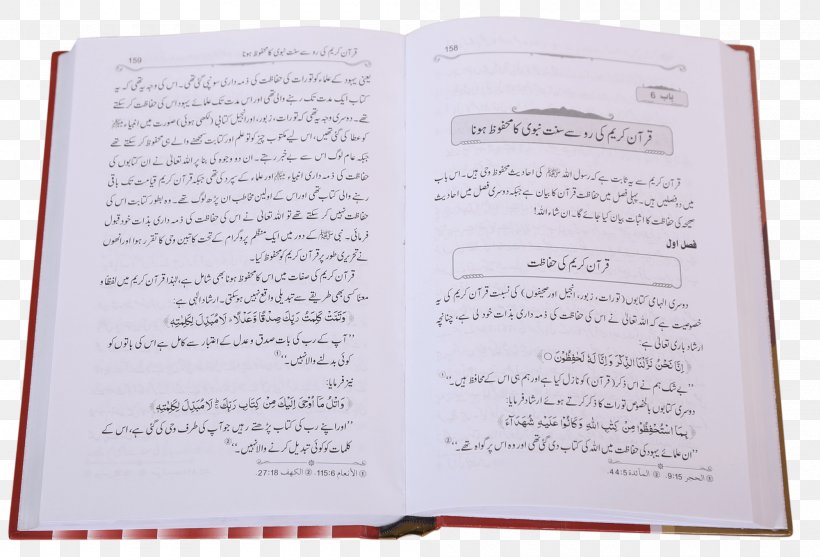 158
باب 6
قرآن کریم کی رو سے سنت نبوی کا محفوظ ہونا
قرآن کریم سے یہ ثابت ہے کہ رسول اللہ ﷺ کی احادیث محفوظ وحی ہیں۔ اس باب
میں دو فصلیں ہیں۔ پہلی فصل میں حفاظت قرآن کا بیان ہے جبکہ دوسری فصل میں احادیث
صحیحہ کی حفاظت کا اثبات بیان کیا جائے گا۔ ان شاء اللہ!
فصل اول
قرآن کریم کی حفاظت
دوسری الہامی کتابوں (تورات، زبور، انجیل اور صحیفوں) کی نسبت قرآن کریم کی یہ
خصوصیت ہے کہ اللہ تعالیٰ نے اس کی حفاظت کی ذمہ داری بذات خود لی ہے، چنانچہ
ارشاد باری تعالیٰ ہے:
﴿إِنَّا نَحْنُ نَزَّلْنَا الذِّكْرَ وَإِنَّا لَهُ لَحٰفِظُوْنَ ○﴾
’’بے شک ہم نے اس ذکر (قرآن) کو نازل کیا ہے اور ہم ہی اس کے محافظ ہیں۔‘‘①
دوسری کتابوں بالخصوص تورات کا ذکر کرتے ہوئے ارشاد فرمایا:
﴿بِمَا اسْتُحْفِظُوْا مِنْ كِتٰبِ اللهِ وَكَانُوْا عَلَيْهِ شُهَدَآءَ﴾
’’ان علمائے یہود کی حفاظت میں اللہ کی کتاب دی گئی تھی اور وہ اس پر گواہ تھے۔‘‘②
① الحجر 9:15. ② المآئدة 44:5.
قرآن کریم کی رو سے سنت نبوی کا محفوظ ہونا 159
یعنی یہود کے علماء کو تورات کی حفاظت کی ذمہ داری سونپی گئی تھی۔ اس کی وجہ یہ تھی کہ یہ
کتاب ایک مدت تک رہنے والی تھی اور اس مدت تک علمائے یہود اس کی حفاظت کر سکتے
تھے۔ دوسری وجہ یہ تھی کہ تورات، زبور، اور انجیل کتابی (لکھی ہوئی) صورت میں انبیاء ﷩
کو عطا کی گئی تھیں، اس لیے مکتوب چیز کو تو علم اور کتابت سمجھنے والے ہی محفوظ کر سکتے تھے
جبکہ عام لوگ اس سے بے خبر رہتے۔ ان دو وجوہ کی بنا پر اللہ تعالیٰ نے ان کتابوں کی
حفاظت کی ذمہ داری انبیاء ﷩ اور علماء کے سپرد کی تھی جبکہ قرآن کریم قیامت تک باقی
رہنے والی کتاب تھی اور اس کے اولین مخاطب ان پڑھ لوگ تھے۔ وہ بطور کتابت اس کی
حفاظت نہیں کر سکتے تھے تو اللہ تعالیٰ نے اس کی حفاظت کی ذمہ داری بذات خود قبول
فرمائی۔ نبی ﷺ کے دور میں ایک منظم پروگرام کے تحت کاتبین وحی کا تقرر ہوا اور انھوں
نے تحریری طور پر قرآن کریم کو محفوظ کیا۔
قرآن کریم کی صفات میں اس کا محفوظ ہونا بھی شامل ہے، لہٰذا قرآن کریم میں لفظاً و
معناً کسی بھی طریقے سے تبدیلی واقع نہیں ہو سکتی۔ ارشاد الٰہی ہے:
﴿وَتَمَّتْ كَلِمَتُ رَبِّكَ صِدْقًا وَّعَدْلًا لَا مُبَدِّلَ لِكَلِمٰتِهٖ﴾
’’آپ کے رب کی بات صدق و عدل کے اعتبار سے کامل ہے اس کی باتوں کو
کوئی بدلنے والا نہیں۔‘‘①
نیز فرمایا:
﴿وَاتْلُ مَآ اُوْحِيَ اِلَيْكَ مِنْ كِتَابِ رَبِّكَ لَا مُبَدِّلَ لِكَلِمٰتِهٖ﴾
’’اور اپنے رب کی کتاب پڑھتے رہیں جو آپ کی طرف وحی کی گئی ہے، اس کے
کلمات کو کوئی تبدیل کرنے والا نہیں۔‘‘②
① الأنعام 115:6. ② الكهف 27:18.